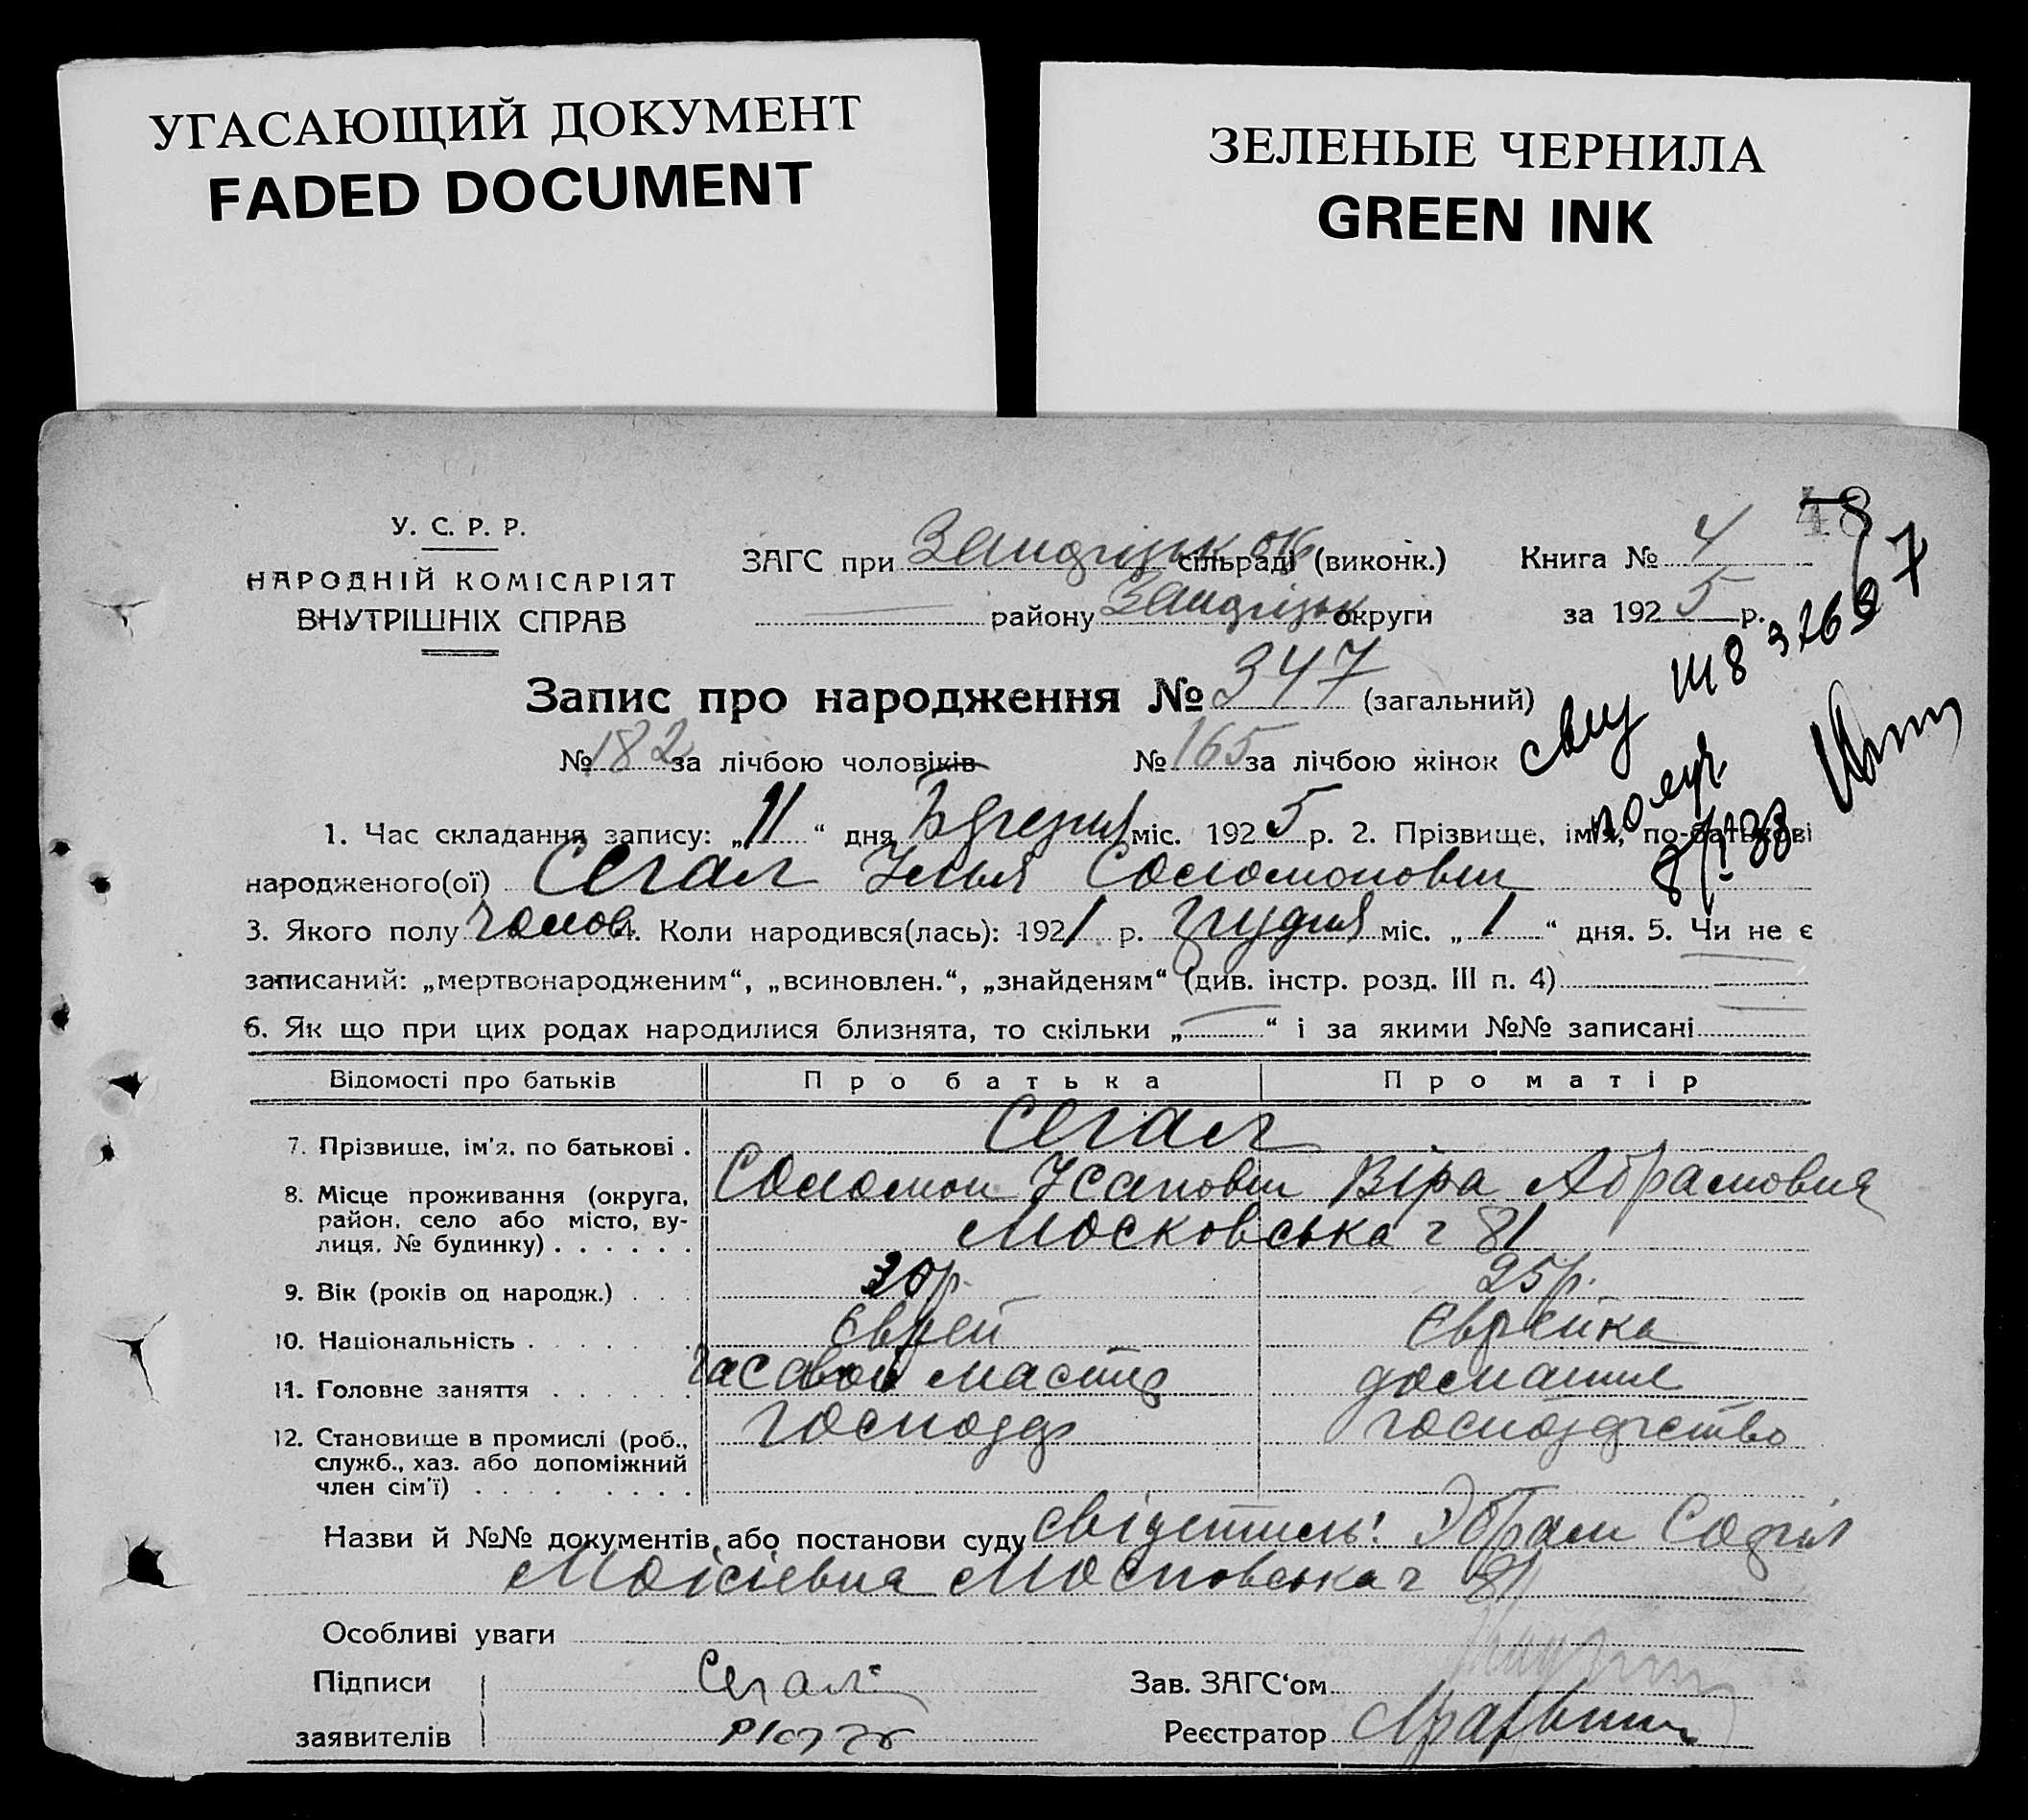 УГАСАЮЩИЙ ДОКУМЕНТ
FADED DOCUMENT
ЗЕЛЕНЫЕ ЧЕРНИЛА
GREEN INK
48
У. С. Р. Р.
НАРОДНІЙ КОМІСАРІЯТ
ВНУТРІШНІХ СПРАВ
ЗАГС при сільраді (виконк.)
району округи
Книга № 4
за 1925 р.
Запис про народження № 347 (загальний)
№ 182 за лічбою чоловіків № 165 за лічбою жінок
1. Час складання запису: „11“ дня Березня міс. 1925 р. 2. Прізвище, ім'я, по-батькові
народженого(ої) Сегал Ілья Соломонович
3. Якого полу чолов. 4. Коли народився(лась): 1921 р. грудня міс. „1“ дня. 5. Чи не є
записаний: „мертвонародженим“, „всиновлен.“, „знайденям“ (див. інстр. розд. III п. 4)
6. Як що при цих родах народилися близнята, то скільки „ “ і за якими №№ записані
Відомості про батьків Про батька Про матір
7. Прізвище, ім'я, по батькові . Сегал
Соломон Ісакович Віра Абрамовна
8. Місце проживання (округа, район, село або місто, ву-
лиця, № будинку) . . . . . . Московська ч 81
9. Вік (років од народж.) . . . 30 р. 25 р.
10. Національність . . . . . . . Єврей Єврейка
11. Головне заняття . . . . . . часавой мастер домашнє
12. Становище в промислі (роб., господар господарство
служб., хаз. або допоміжний
член сім'ї) . . . . . . . . .
Назви й №№ документів або постанови суду свідетель: Софія
Моісієвна Московська ч 81
Особливі уваги
Підписи Сегал Зав. ЗАГС‘ом
заявителів Реєстратор